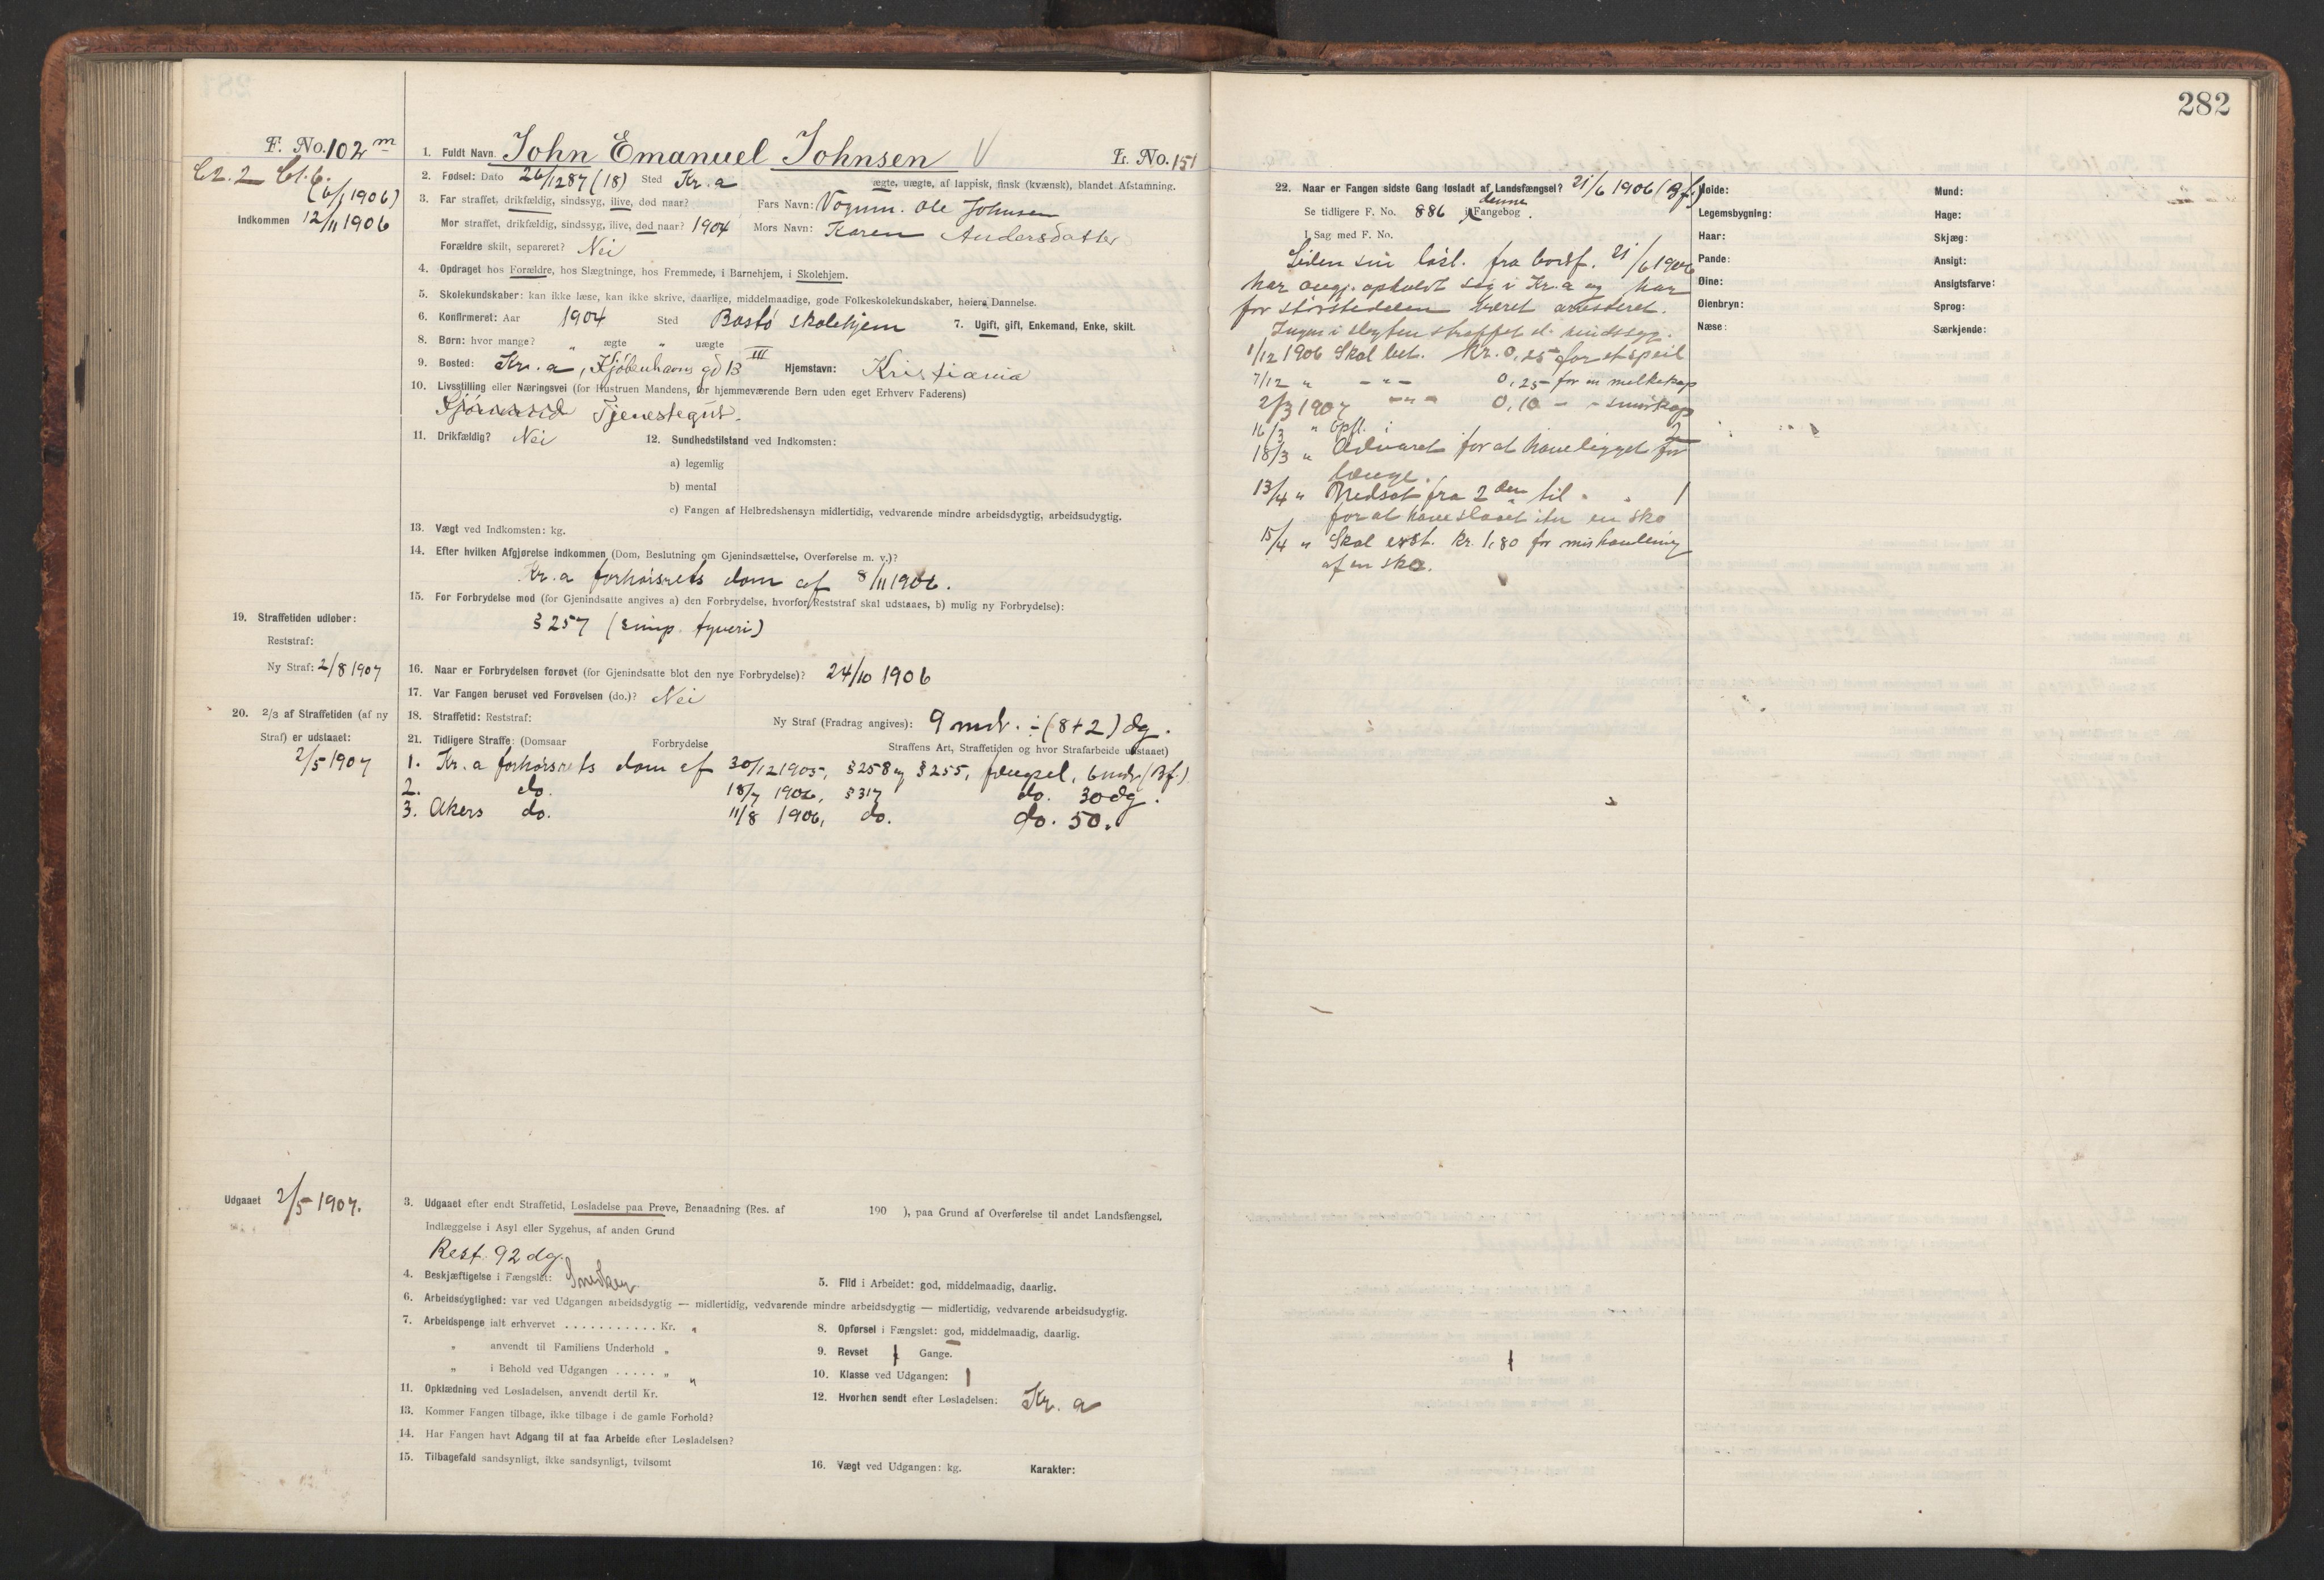 282
F. No. 102 m
Cl. 2 Cl. 6.
(6/1 1906)
Indkommen 12/11 1906
1. Fuldt Navn. John Emanuel Johnsen V L. No. 151
2. Fødsel: Dato 26/12 87 (18) Sted Kr.a ægte, uægte, af lappisk, finsk (kvænsk), blandet Afstamning.
3. Far straffet, drikfældig, sindssyg, ilive, død naar? Fars Navn: Vognm. Ole Johnsen
Mor straffet, drikfældig, sindssyg, ilive, død naar? 1904 Mors Navn: Karen Andersdatter
Forældre skilt, separeret? Nei
4. Opdraget hos Forældre, hos Slægtninge, hos Fremmede, i Barnehjem, i Skolehjem.
5. Skolekundskaber: kan ikke læse, kan ikke skrive, daarlige, middelmaadige, gode Folkeskolekundskaber, høiere Dannelse.
6. Konfirmeret: Aar 1904 Sted Bastø skolehjem 7. Ugift, gift, Enkemand, Enke, skilt.
8. Børn: hvor mange? " ægte " uægte
9. Bosted: Kr.a, Kjøbenhavns gd 13 III Hjemstavn: Kristiania
10. Livsstilling eller Næringsvei (for Hustruen Mandens, for hjemmeværende Børn uden eget Erhverv Faderens)
Tjenestegut.
11. Drikfældig? Nei 12. Sundhedstilstand ved Indkomsten:
a) legemlig
b) mental
c) Fangen af Helbredshensyn midlertidig, vedvarende mindre arbeidsdygtig, arbeidsudygtig.
13. Vægt ved Indkomsten: kg.
14. Efter hvilken Afgjørelse indkommen (Dom, Beslutning om Gjenindsættelse, Overførelse m. v.)?
Kr.a forhørsrets dom af 8/11 1906.
15. For Forbrydelse mod (for Gjenindsatte angives a) den Forbrydelse, hvorfor Reststraf skal udstaaes, b) mulig ny Forbrydelse):
§ 257 (simp. tyveri)
19. Straffetiden udløber:
Reststraf:
Ny Straf: 2/8 1907
16. Naar er Forbrydelsen forøvet (for Gjenindsatte blot den nye Forbrydelse)? 24/10 1906
17. Var Fangen beruset ved Forøvelsen (do.)? Nei
20. 2/3 af Straffetiden (af ny
Straf) er udstaaet:
2/5 1907
18. Straffetid: Reststraf: Ny Straf (Fradrag angives): 9 mdr. ÷ (8+2) dg.
21. Tidligere Straffe: (Domsaar Forbrydelse Straffens Art, Straffetiden og hvor Strafarbeide udstaaet)
1. Kr.a forhørsrets dom af 30/12 1905, § 258 og § 255, fængsel, 6 mdr (Bf.)
2. do. 18/7 1906, § 317 do. 30 dg.
3. Akers do. 11/8 1906, do. do. 50.
Udgaaet 2/5 1907.
3. Udgaaet efter endt Straffetid, Løsladelse paa Prøve, Benaadning (Res. af 190 ), paa Grund af Overførelse til andet Landsfængsel,
Indlæggelse i Asyl eller Sygehus, af anden Grund
Rest. 92 dg.
4. Beskjæftigelse i Fængslet: Snedker
5. Flid i Arbeidet: god, middelmaadig, daarlig.
6. Arbeidsdygtighed: var ved Udgangen arbeidsdygtig — midlertidig, vedvarende mindre arbeidsdygtig — midlertidig, vedvarende arbeidsudygtig.
7. Arbeidspenge ialt erhvervet ........... Kr. "
" anvendt til Familiens Underhold "
" i Behold ved Udgangen ..... " "
8. Opførsel i Fængslet: god, middelmaadig, daarlig.
9. Revset 1 Gange.
10. Klasse ved Udgangen: 1
11. Opklædning ved Løsladelsen, anvendt dertil Kr.
12. Hvorhen sendt efter Løsladelsen: Kr.a
13. Kommer Fangen tilbage, ikke tilbage i de gamle Forhold?
14. Har Fangen havt Adgang til at faa Arbeide efter Løsladelsen?
15. Tilbagefald sandsynligt, ikke sandsynligt, tvilsomt
16. Vægt ved Udgangen: kg. Karakter:
22. Naar er Fangen sidste Gang løsladt af Landsfængsel? 21/6 1906 (Bf.)
Se tidligere F. No. 886 i denne Fangebog.
I Sag med F. No.
Siden sin løsl. fra bodsf. 21/6 1906
har angj. opholdt sig i Kr.a og har
for størstedelen været arresteret.
Ingen i slegten straffet el. sindssyg.
1/12 1906 Skal bet. Kr. 0,25 for et speil
7/12 " - " - 0,25 - for en melkekop
2/3 1907 - " - 0,10 - - smørkop
16/3 " Opfl. i 2
18/3 " Advaret for at have ligget for
længe.
13/4 " Nedsat fra 2den til " " 1
for at have slaaet itu en sko
15/4 " Skal erst. Kr. 1,80 for mishandling
af en sko.
Høide:
Legemsbygning:
Haar:
Pande:
Øine:
Øienbryn:
Næse:
Mund:
Hage:
Skjæg:
Ansigt:
Ansigtsfarve:
Sprog:
Særkjende: